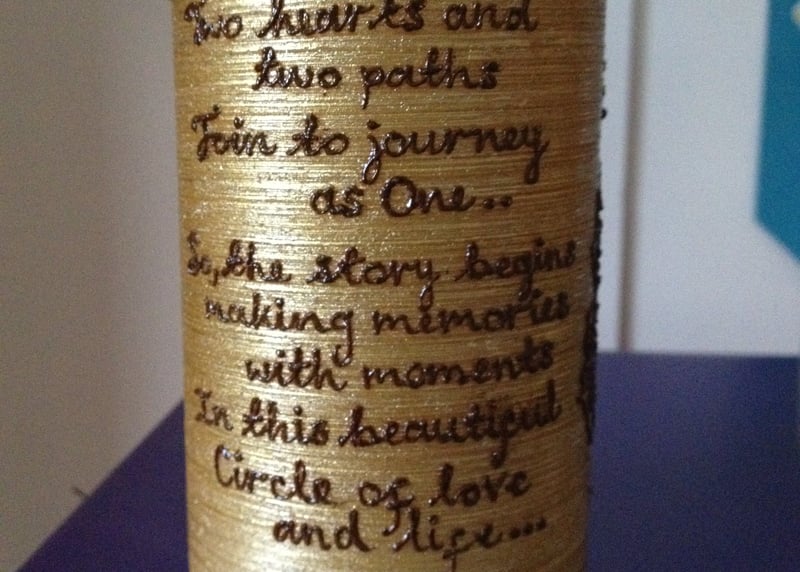 Two hearts and
two paths
Join to journey
as One..
So, the story begins
making memories
with moments
In this beautiful
Circle of love
and life...